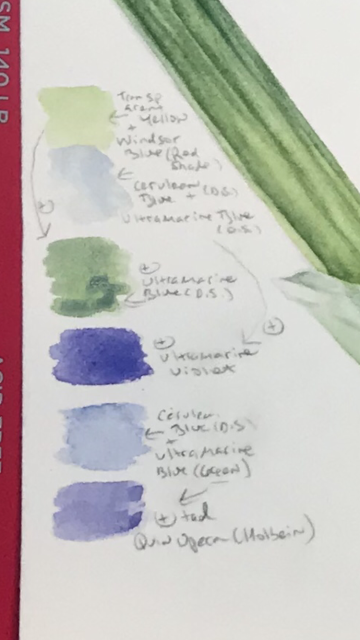 Transp
Yellow
+
Windsor
Blue (Red
Shade)
Cerulean (D.S.)
Blue +
Ultramarine Blue
(D.S.)
+
+ Ultramarine
Blue (D.S.)
+
+ Ultramarine
Violet
Cerulean
Blue (D.S)
+
Ultramarine
Blue (Green)
+ tad
Quin (Holbein)